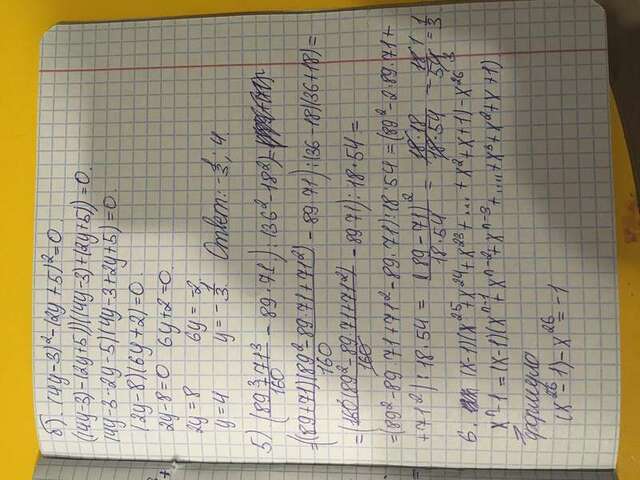 б). (4y-3)²-(2y+5)²=0.
((4y-3)-(2y+5))((4y-3)+(2y+5))=0.
(4y-3-2y-5)(4y-3+2y+5)=0.
(2y-8)(6y+2)=0.
2y-8=0 6y+2=0.
2y=8 6y=-2.
y=4 y=-1/3. Ответ: -1/3, 4.
5) ((89³+71³)/160 - 89·71):(36²-18²)=
=((89+71)(89²-89·71+71²)/160 - 89·71):(36-18)(36+18)=
=(160(89²-89·71+71²)/160 - 89·71):18·54=
=(89²-89·71+71²-89·71):18·54=(89²-2·89·71+
+71²):18·54=(89-71)²/18·54=18·18/18·54=18/54=1/3
6. (x-1)(x²⁵+x²⁴+x²³+...+x²+x+1)-x²⁶
xⁿ-1=(x-1)(xⁿ⁻¹+xⁿ⁻²+xⁿ⁻³+...+x³+x²+x+1)
Формула
(x²⁶-1)-x²⁶=-1